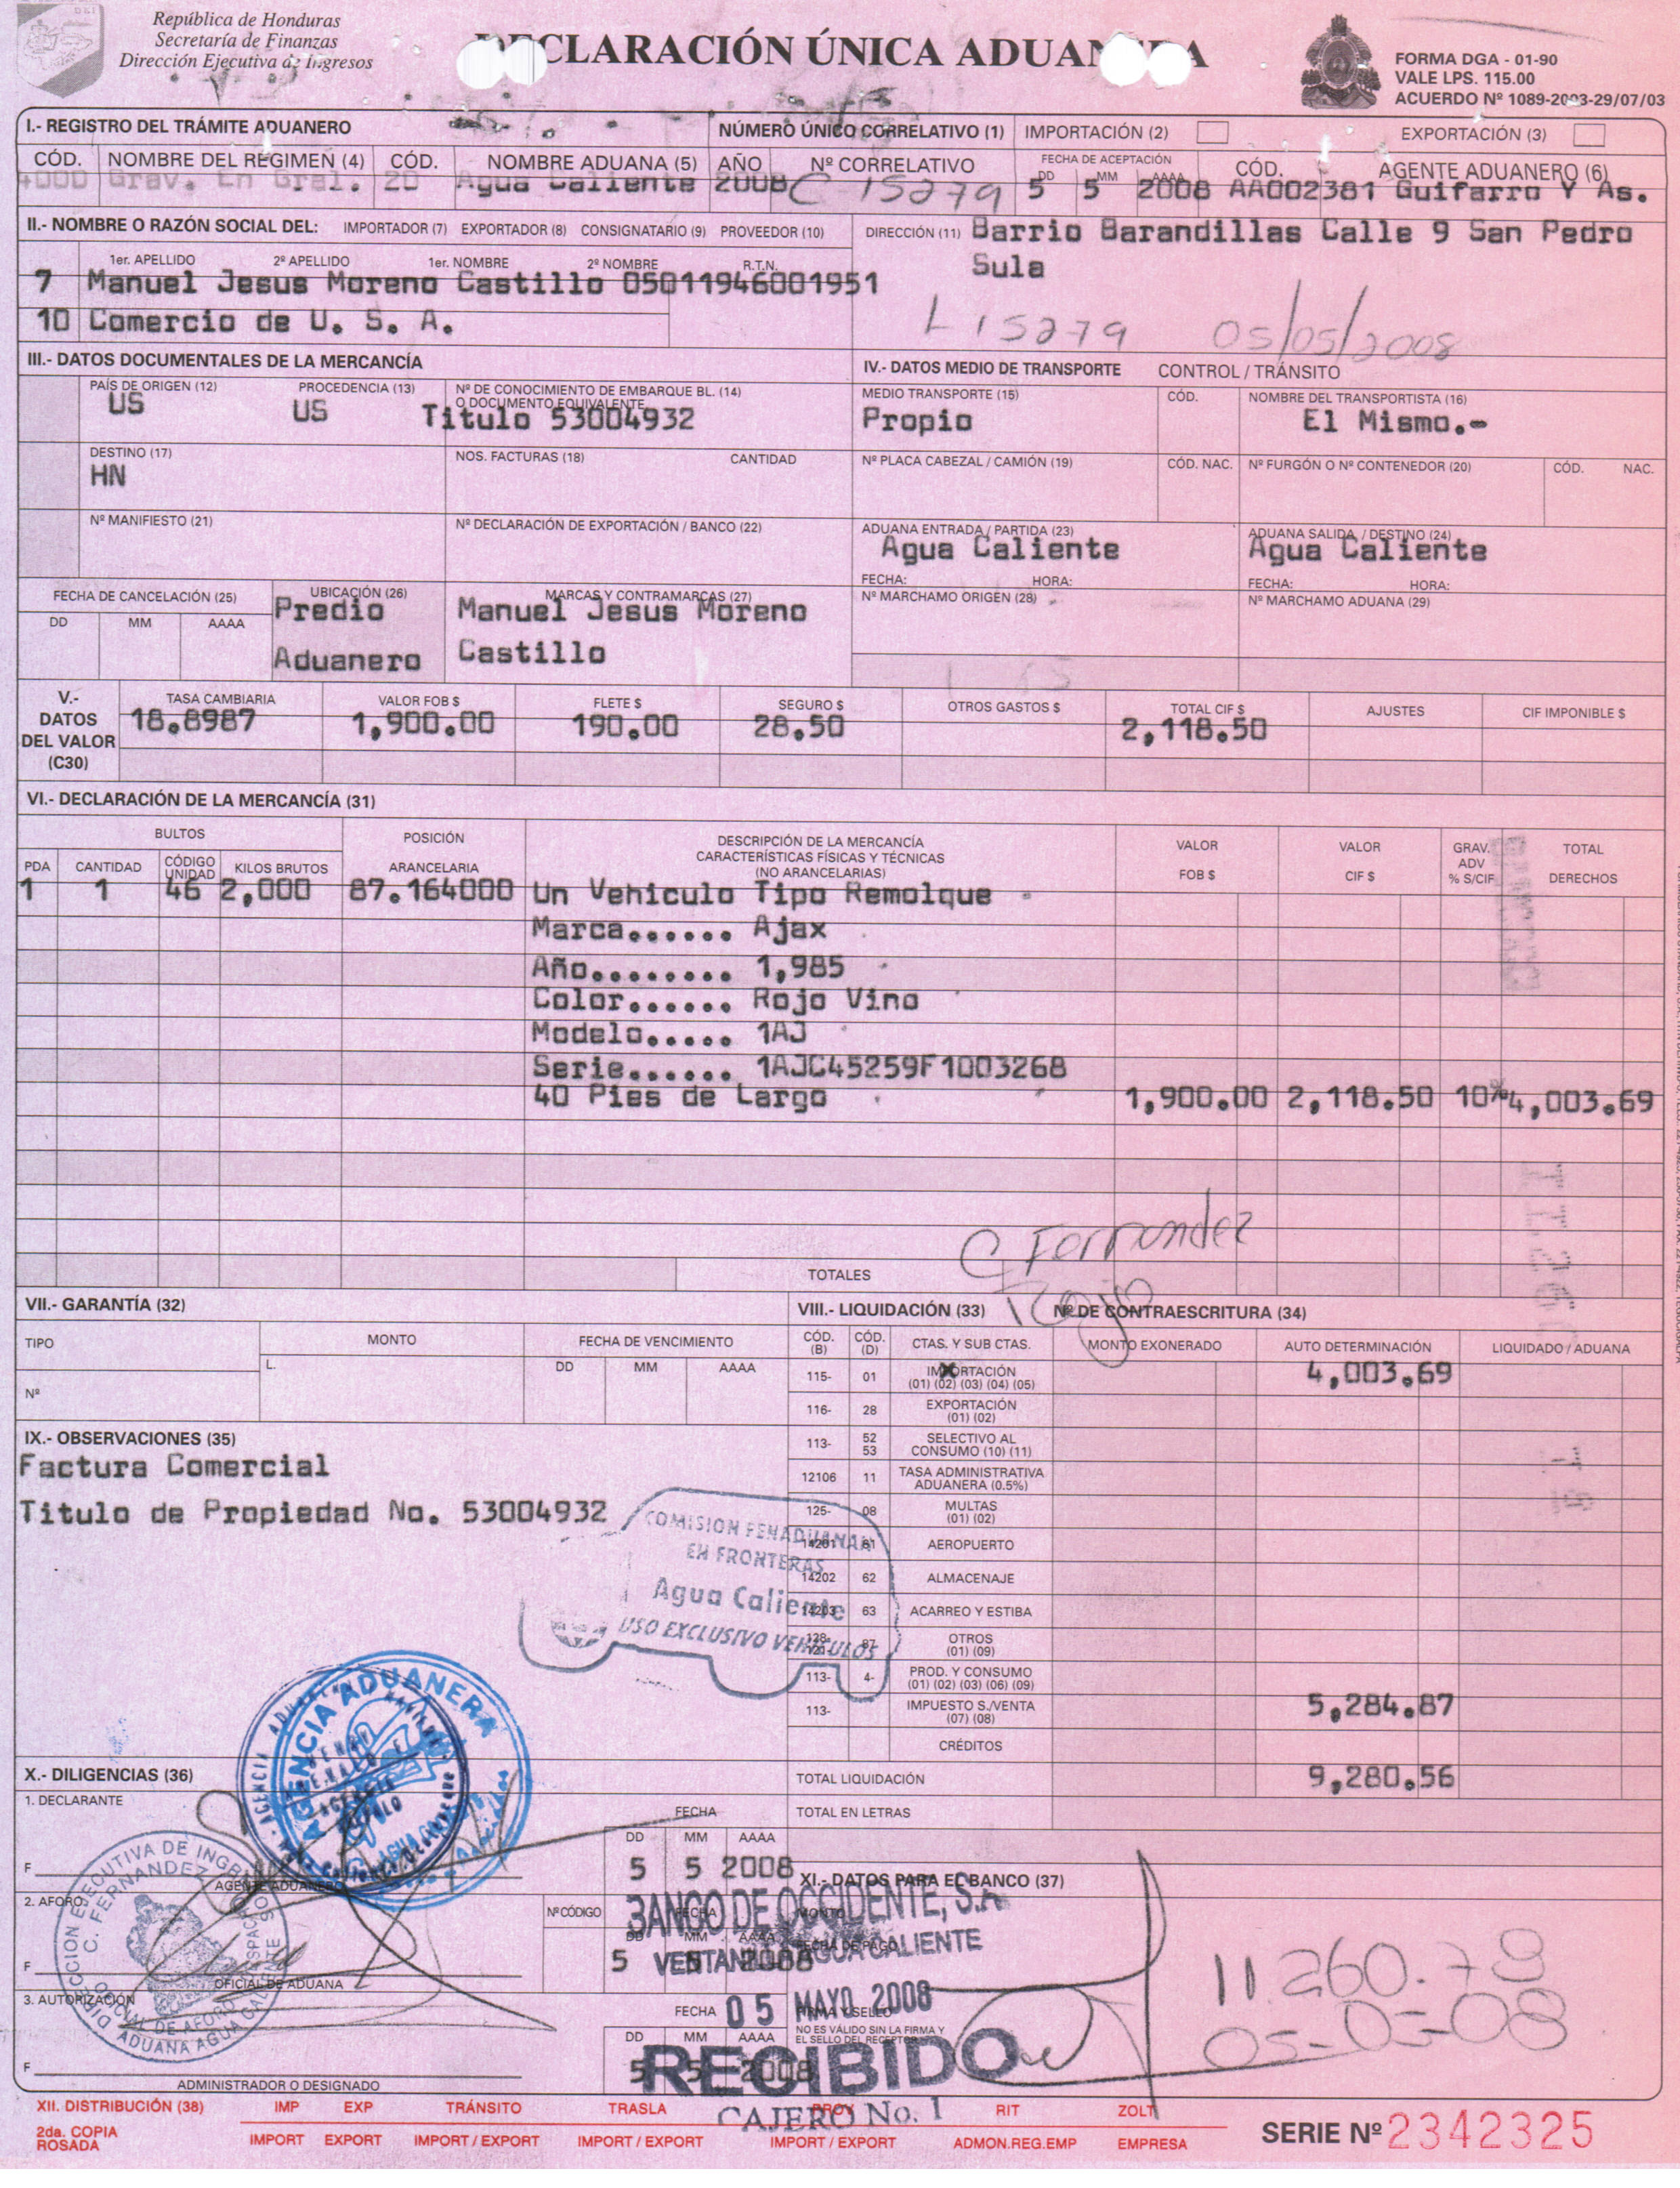 República de Honduras
Secretaría de Finanzas
Dirección Ejecutiva de Ingresos
DECLARACIÓN ÚNICA ADUANERA
FORMA DGA - 01-90
VALE LPS. 115.00
ACUERDO Nº 1089-2003-29/07/03
I.- REGISTRO DEL TRÁMITE ADUANERO NÚMERO ÚNICO CORRELATIVO (1) IMPORTACIÓN (2) EXPORTACIÓN (3)
CÓD. NOMBRE DEL RÉGIMEN (4) CÓD. NOMBRE ADUANA (5) AÑO Nº CORRELATIVO FECHA DE ACEPTACIÓN DD MM AAAA CÓD. AGENTE ADUANERO (6)
4000 Grav. En Gral. 20 Agua Caliente 2008 C 15279 5 5 2008 AA002381 Guifarro Y As.
II.- NOMBRE O RAZÓN SOCIAL DEL: IMPORTADOR (7) EXPORTADOR (8) CONSIGNATARIO (9) PROVEEDOR (10) DIRECCIÓN (11) Barrio Barandillas Calle 9 San Pedro
Sula
1er. APELLIDO 2º APELLIDO 1er. NOMBRE 2º NOMBRE R.T.N.
7 Manuel Jesus Moreno Castillo 05011946001951
10 Comercio de U. S. A.
L 15279 05/05/2008
III.- DATOS DOCUMENTALES DE LA MERCANCÍA IV.- DATOS MEDIO DE TRANSPORTE CONTROL / TRÁNSITO
PAÍS DE ORIGEN (12) PROCEDENCIA (13) Nº DE CONOCIMIENTO DE EMBARQUE BL. (14) O DOCUMENTO EQUIVALENTE MEDIO TRANSPORTE (15) CÓD. NOMBRE DEL TRANSPORTISTA (16)
US US Titulo 53004932 Propio El Mismo.-
DESTINO (17) NOS. FACTURAS (18) CANTIDAD Nº PLACA CABEZAL / CAMIÓN (19) CÓD. NAC. Nº FURGÓN O Nº CONTENEDOR (20) CÓD. NAC.
HN
Nº MANIFIESTO (21) Nº DECLARACIÓN DE EXPORTACIÓN / BANCO (22) ADUANA ENTRADA / PARTIDA (23) ADUANA SALIDA / DESTINO (24)
Agua Caliente Agua Caliente
FECHA: HORA: FECHA: HORA:
FECHA DE CANCELACIÓN (25) UBICACIÓN (26) MARCAS Y CONTRAMARCAS (27) Nº MARCHAMO ORIGEN (28) Nº MARCHAMO ADUANA (29)
DD MM AAAA Predio Manuel Jesus Moreno
Aduanero Castillo
V.- DATOS DEL VALOR (C30) TASA CAMBIARIA VALOR FOB $ FLETE $ SEGURO $ OTROS GASTOS $ TOTAL CIF $ AJUSTES CIF IMPONIBLE $
18.8987 1,900.00 190.00 28.50 2,118.50
VI.- DECLARACIÓN DE LA MERCANCÍA (31)
BULTOS POSICIÓN DESCRIPCIÓN DE LA MERCANCÍA VALOR VALOR GRAV. TOTAL
CARACTERÍSTICAS FÍSICAS Y TÉCNICAS
PDA CANTIDAD CÓDIGO UNIDAD KILOS BRUTOS ARANCELARIA (NO ARANCELARIAS) FOB $ CIF $ ADV % S/CIF DERECHOS
1 1 46 2,000 87.164000 Un Vehiculo Tipo Remolque
Marca...... Ajax
Año........ 1,985
Color...... Rojo Vino
Modelo..... 1AJ
Serie...... 1AJC45259F1003268
40 Pies de Largo 1,900.00 2,118.50 10% 4,003.69
C Fernandez
Rojo
TOTALES
VII.- GARANTÍA (32) VIII.- LIQUIDACIÓN (33) Nº DE CONTRAESCRITURA (34)
TIPO MONTO FECHA DE VENCIMIENTO CÓD. (B) CÓD. (D) CTAS. Y SUB CTAS. MONTO EXONERADO AUTO DETERMINACIÓN LIQUIDADO / ADUANA
L. DD MM AAAA
Nº
115- 01 IMPORTACIÓN (01) (02) (03) (04) (05) 4,003.69
116- 28 EXPORTACIÓN (01) (02)
113- 52 53 SELECTIVO AL CONSUMO (10) (11)
12106 11 TASA ADMINISTRATIVA ADUANERA (0.5%)
125- 08 MULTAS (01) (02)
14201 61 AEROPUERTO
14202 62 ALMACENAJE
14203 63 ACARREO Y ESTIBA
128- 121- 87 OTROS (01) (09)
113- 4- PROD. Y CONSUMO (01) (02) (03) (06) (09)
113- IMPUESTO S./VENTA (07) (08) 5,284.87
CRÉDITOS
TOTAL LIQUIDACIÓN 9,280.56
TOTAL EN LETRAS
IX.- OBSERVACIONES (35)
Factura Comercial
Titulo de Propiedad No. 53004932
COMISION FENADUANAH
EN FRONTERAS
Agua Caliente
USO EXCLUSIVO VEHICULOS
AGENCIA ADUANERA
X.- DILIGENCIAS (36)
1. DECLARANTE FECHA
DD MM AAAA
F AGENTE ADUANERO 5 5 2008
XI.- DATOS PARA EL BANCO (37)
2. AFORO Nº CÓDIGO FECHA MONTO
DD MM AAAA FECHA DE PAGO
F OFICIAL DE ADUANA 5 5 2008
DIRECCION EJECUTIVA DE INGRESOS
C. FERNANDEZ
OFICIAL DE AFORO
ADUANA AGUA CALIENTE
BANCO DE OCCIDENTE, S.A.
VENTANILLA AGUA CALIENTE
05 MAYO 2008
RECIBIDO
CAJERO No. 1
11 260.79
05-05-08
3. AUTORIZACIÓN FECHA FIRMA Y SELLO
DD MM AAAA NO ES VÁLIDO SIN LA FIRMA Y EL SELLO DEL RECEPTOR
F 5 5 2008
ADMINISTRADOR O DESIGNADO
XII. DISTRIBUCIÓN (38) IMP EXP TRÁNSITO TRASLA PROV RIT ZOLT
2da. COPIA ROSADA IMPORT EXPORT IMPORT / EXPORT IMPORT / EXPORT IMPORT / EXPORT ADMON.REG.EMP EMPRESA
SERIE Nº 2342325